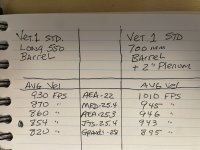 VET.1 STD. VET 1 STD
LONG 550 700 mm
Barrel Barrel
+ 2" Plenum
AVG Vel AVG Vel
930 FPS AEA-22 1010 FPS
870 " MRD.25.4 945 "
860 " AEA 25.3 946 "
854 " JTS.25.4 943 "
820 " -28 895 "